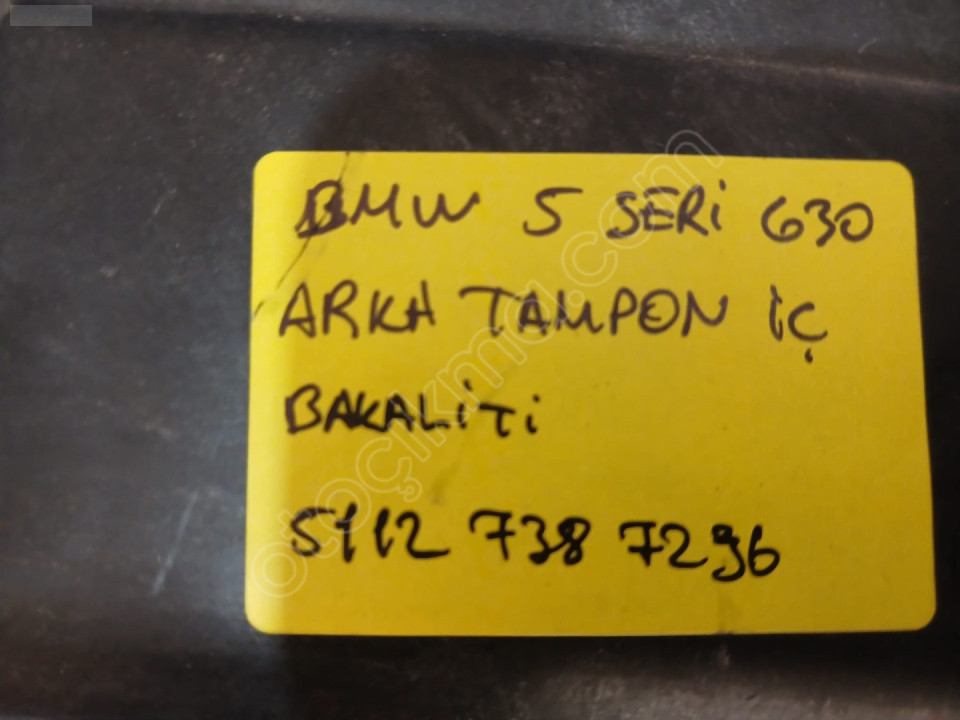 BMW 5 SERİ G30
ARKA TAMPON İÇ
BAKALİTİ
5112 738 7296
otoçıkma.com